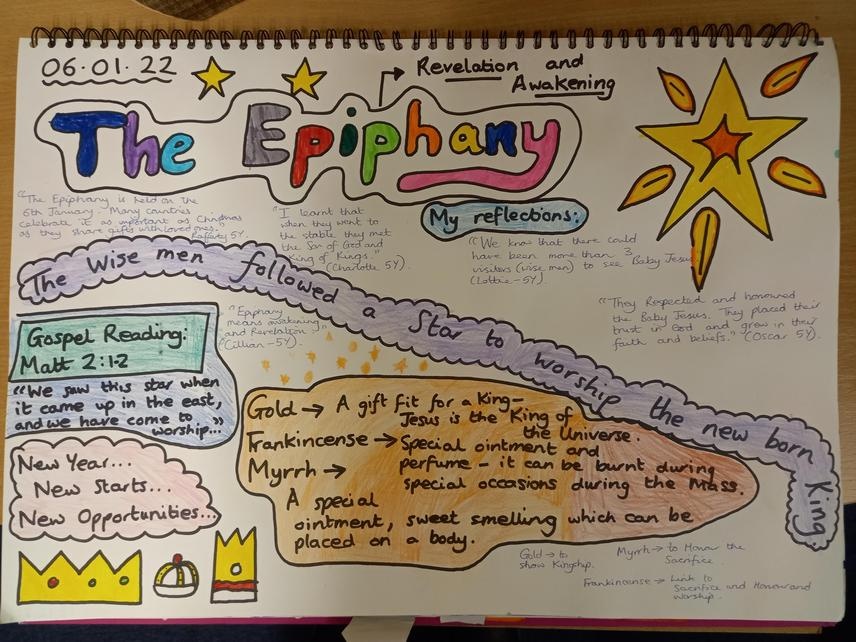 06.01.22
Revelation and
Awakening
The Epiphany
"The Epiphany is held on the
6th January. Many countries
celebrate it as important as Christmas
as they share gifts with loved ones."
Rafferty 5Y.
"I learnt that
when they went to
the stable they met
the Son of God and
King of Kings."
(Charlotte 5Y)
My reflections:
"We know that there could
have been more than 3
visitors (wise men) to see Baby Jesus.
(Lottie-5Y).
"They Respected and honoured
the Baby Jesus. They placed their
trust in God and grew in their
faith and beliefs." (Oscar 5Y)
The Wise men followed a Star to worship the new born King.
Gospel Reading:
Matt 2:1-2
"We saw this star when
it came up in the east,
and we have come to
worship..."
"Epiphany
means awakening
and Revelation."
(Cillian-5Y).
New Year...
New Starts...
New Opportunities...
Gold → A gift fit for a King-
Jesus is the King of
the Universe.
Frankincense → Special ointment and
perfume - it can be burnt during
special occasions during the Mass.
Myrrh →
A special
ointment, sweet smelling which can be
placed on a body.
Gold → to
show Kingship.
Myrrh → to Honour the
Sacrifice.
Frankincense → Link to
Sacrifice and Honour and
worship.